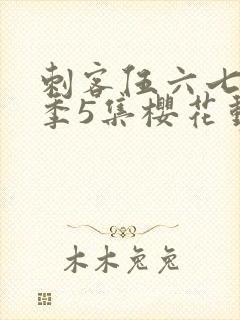 刺客伍六七
季5集櫻花動
木木兔兔